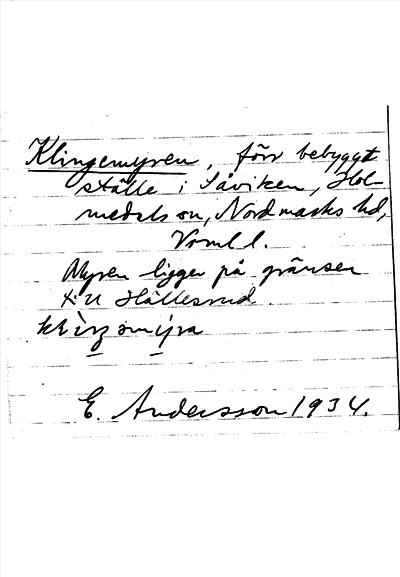 Klingemyren, förr bebyggt
ställe i Såviken, Hol-
medals sn, Nordmarks hd,
Vrml l.
Myren ligger på gränsen
till Hällesrud.
E. Andersson 1934.